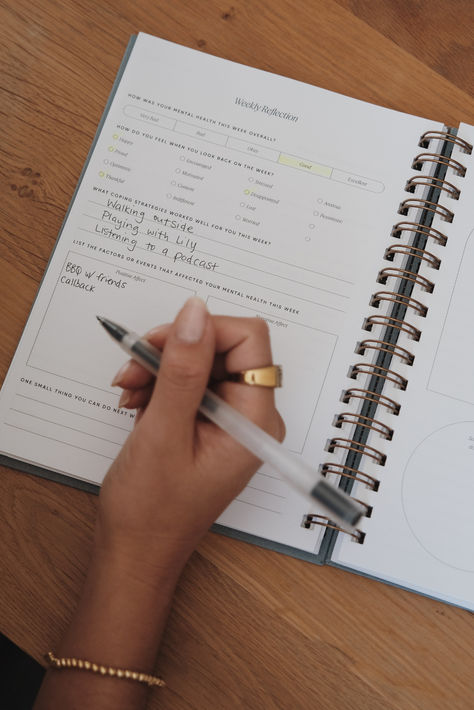 Weekly Reflection
HOW WAS YOUR MENTAL HEALTH THIS WEEK OVERALL?
Very bad Bad Okay Good Excellent
HOW DO YOU FEEL WHEN YOU LOOK BACK ON THE WEEK?
Happy Unmotivated Stressed Anxious
Proud Motivated Disappointed Pessimistic
Optimistic Content Lost
Thankful Indifferent Worried
WHAT COPING STRATEGIES WORKED WELL FOR YOU THIS WEEK?
Walking outside
Playing with Lily
Listening to a podcast
LIST THE FACTORS OR EVENTS THAT AFFECTED YOUR MENTAL HEALTH THIS WEEK
Positive Affect Negative Affect
BBQ w/ friends
Callback
ONE SMALL THING YOU CAN DO